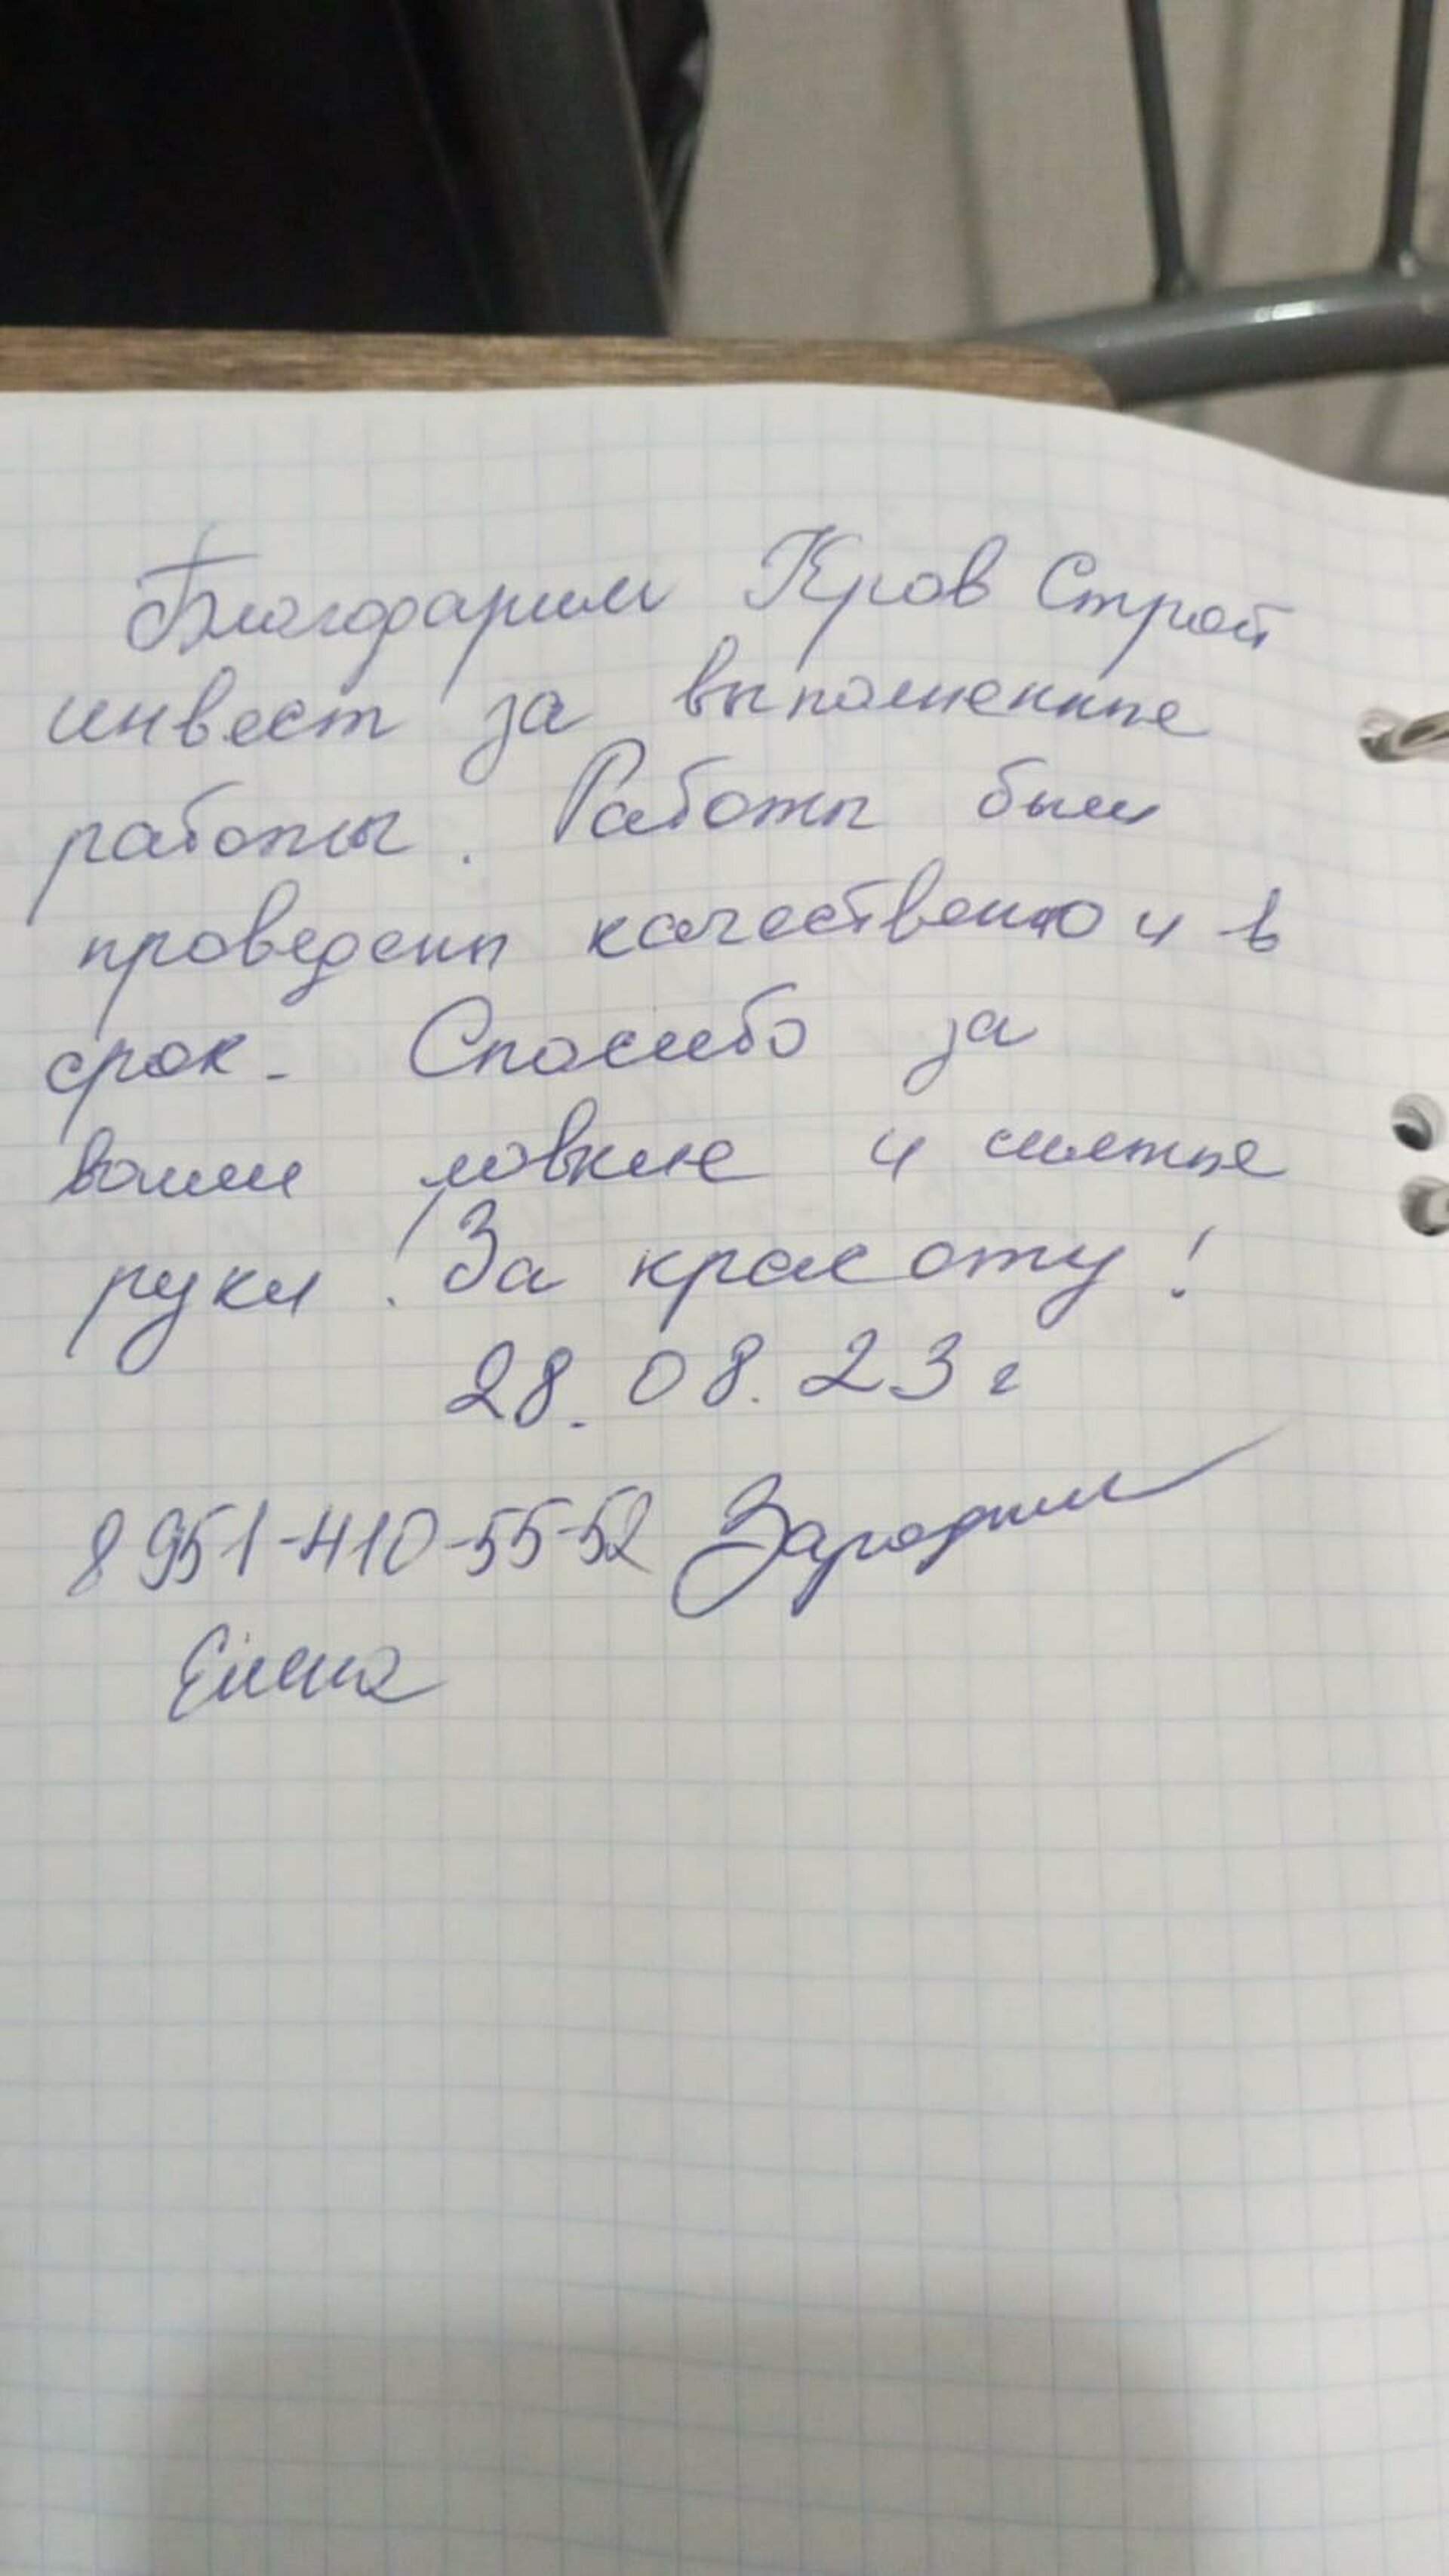 Благодарим Кров Строй
инвест за выполненные
работы. Работы были
проведены качественно и в
срок. Спасибо за
ваши ловкие и смелые
руки! За красоту!
28.08.23г
8951-410-55-52
Елена